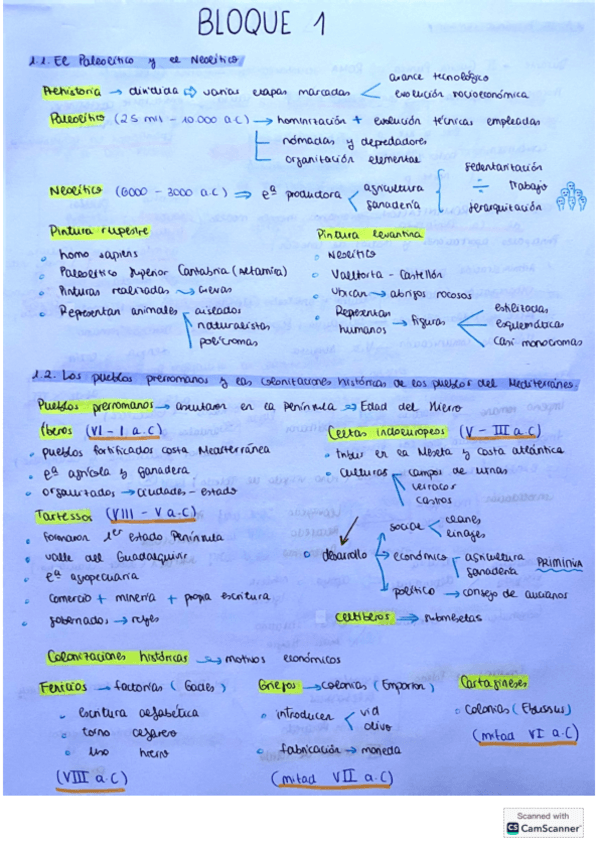 BLOQUE 1
1.1. El Paleolítico y el Neolítico
Prehistoria → dividida ⇨ varias etapas marcadas < avance tecnológico
evolución socioeconómica
Paleolítico (2'5 mil - 10.000 a.C) → hominización + evolución técnicas empleadas
nómadas y depredadores
organización elemental
Neolítico (6000 - 3000 a.C) ⇒ eª productora < agricultura
ganadería
sedentarización
÷ Trabajo
jerarquización
Pintura rupestre
homo sapiens
Paleolítico Superior Cantabria (Altamira)
Pinturas realizadas → cuevas
Representan animales - aislados
naturalistas
polícromas
Pintura levantina
Neolítico
Valltorta - Castellón
Ubican → abrigos rocosos
Representan humanos → figuras < estilizadas
esquemáticas
casi monocromas
1.2. Los pueblos prerromanos y las colonizaciones históricas de los pueblos del Mediterráneo.
Pueblos prerromanos → asentaron en la Península ⇒ Edad del Hierro
Íberos (VI - I a.C)
pueblos fortificados costa Mediterránea
eª agrícola y ganadera
organizados → ciudades - estado
Celtas indoeuropeos (V - III a.C)
tribus en la Meseta y costa atlántica
culturas - campos de urnas
verracos
castros
Tartessos (VIII - V a.C)
formaron 1er estado Península
valle del Guadalquivir
eª agropecuaria
comercio + minería + propia escritura
gobernados → reyes
desarrollo
social < clanes
linajes
económico - agricultura
ganadería
PRIMITIVA
político → consejo de ancianos
Celtíberos → submeseta
Colonizaciones históricas → motivos económicos
Fenicios → factorías (Gades)
escritura alfabética
torno alfarero
uso hierro
(VIII a.C)
Griegos → colonias (Emporion)
introducen < vid
olivo
fabricación → moneda
(mitad VII a.C)
Cartagineses
colonias (Ebussus)
(mitad VI a.C)
Scanned with
CS CamScanner